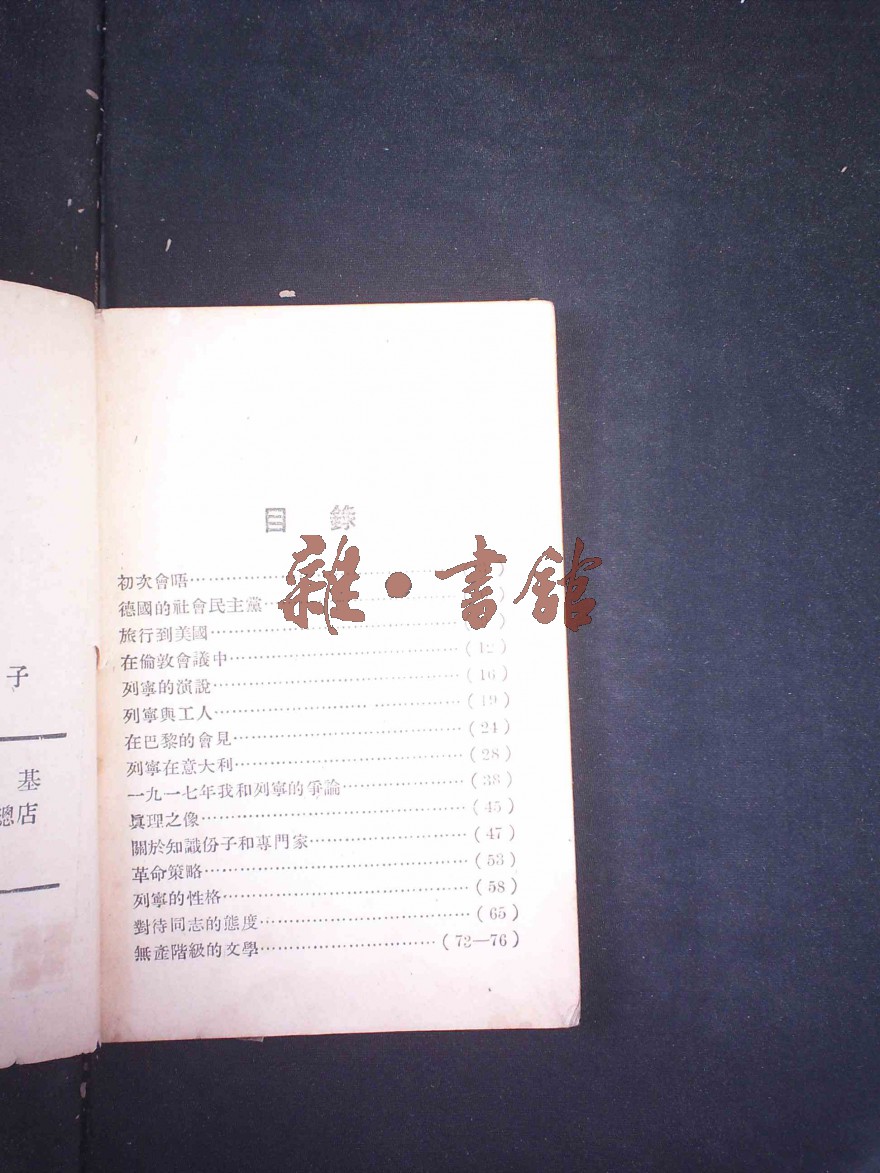 子
基
總店
目錄
初次會唔……
德國的社會民主黨……
旅行到美國……
在倫敦會議中……(12)
列寧的演說……(16)
列寧與工人……(19)
在巴黎的會見……(24)
列寧在意大利……(28)
一九一七年我和列寧的爭論……(38)
眞理之像……(45)
關於知識份子和專門家……(47)
革命策略……(53)
列寧的性格……(58)
對待同志的態度……(65)
無產階級的文學……(73—76)
雜·書館